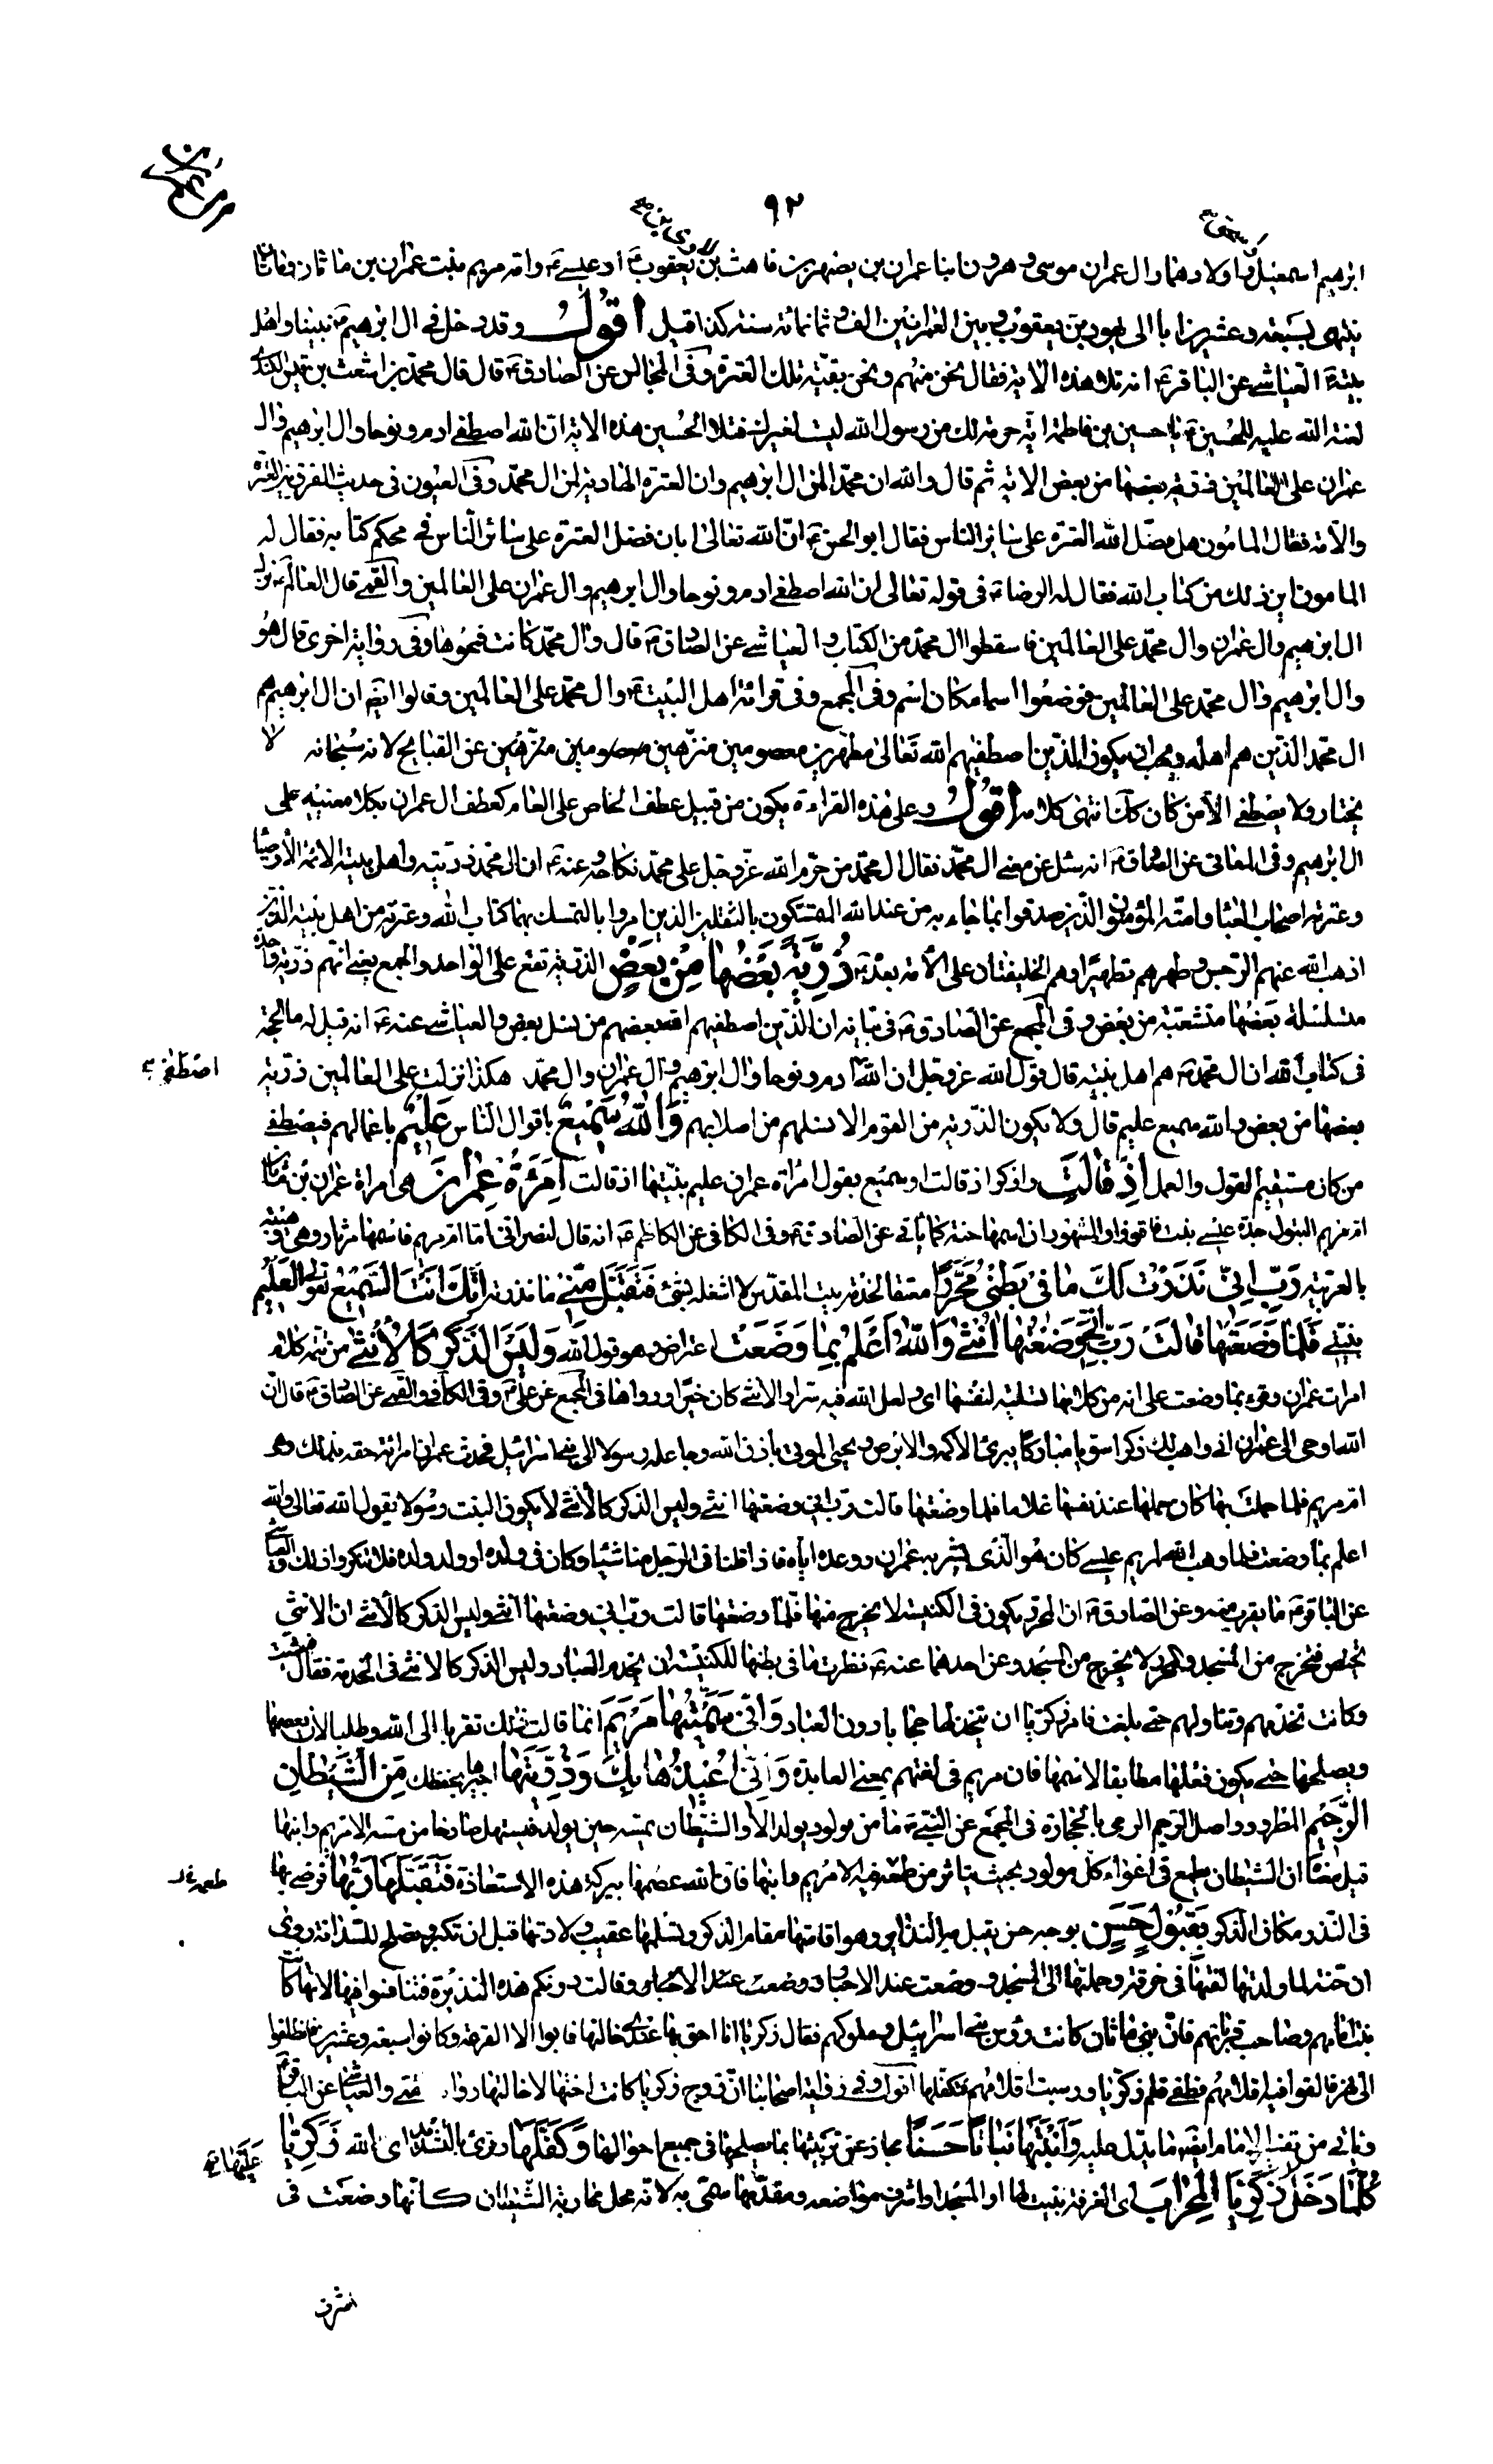 ٩٢
ابرهيم اسمعيل و اولادهما وال عمران موسى وهرون ابنا عمران بن يصهر بن قاهث بن يعقوب ع او عيسى ع وامه مريم بنت عمران بن ماثان وماثان
ينتهى بسبعة وعشرين ابا الى يهود بن يعقوب وبين العمرانين الف وثمانمائة سنة كذا قيل اقول وقد دخل فى ال ابرهيم نبينا واهل
بيته ع العياشى عن الباقر ع انه تلا هذه الاية فقال نحن منهم ونحن بقية تلك العترة وفى المجالس عن الصادق ع قال قال محمد بن اشعث بن قيس الكندى
لعنة الله عليه للحسين ع يا حسين بن فاطمة اية حرمة لك من رسول الله ليست لغيرك فتلا الحسين هذه الاية ان الله اصطفى ادم ونوحا وال ابرهيم وال
عمران على العالمين ذرية بعضها من بعض الاية ثم قال والله ان محمدا لمن ال ابرهيم وان العترة الهادية لمن ال محمد وفى العيون فى حديث الفرق بين العترة
والامة فقال المامون هل فضل الله العترة على سائر الناس فقال ابو الحسن ع ان الله تعالى ابان فضل العترة على سائر الناس فى محكم كتابه فقال له
المامون اين ذلك من كتاب الله فقال له الرضا ع فى قوله تعالى ان الله اصطفى ادم ونوحا وال ابرهيم وال عمران على العالمين والقمى قال العالم ع نزل
ال ابرهيم وال عمران وال محمد على العالمين فاسقطوا ال محمد من الكتاب والعياشى عن الصادق ع قال وال محمد كانت فمحوها وفى رواية اخرى قال هو
وال ابرهيم وال محمد على العالمين فوضعوا اسما مكان اسم وفى المجمع وفى قرائة اهل البيت ع وال محمد على العالمين وقالوا ايضا ان ال ابرهيم هم
ال محمد الذين هم اهله ويجب ان يكون الذين اصطفيهم الله تعالى مطهرين معصومين منزهين عن القبايح لانه سبحانه لا
يختار ولا يصطفى الا من كان كك انتهى كلامه اقول وعلى هذه القراءة يكون من قبيل عطف الخاص على العام كعطف ال عمران بكلا معنييه على
ال ابرهيم وفى المعانى عن الصادق ع انه سئل عن معنى ال محمد فقال ال محمد من حرم الله عز وجل على محمد نكاحه وعنه ع ان ال محمد ذريته واهل بيته الائمة الاوصياء
وعترته اصحاب العباء وامته المؤمنون الذين صدقوا بما جاء به من عند الله المتمسكون بالثقلين الذين امروا بالتمسك بهما كتاب الله وعترته من اهل بيته الذين
اذهب الله عنهم الرجس وطهرهم تطهيرا وهم الخليفتان على الامة بعده ع ذُرِّيَّةً بَعْضُها مِنْ بَعْضٍ الذرية تقع على الواحد والجمع يعنى انهم ذرية واحدة
متسلسلة بعضها متشعبة من بعض وفى المجمع عن الصادق ع فى بيانه ان الذين اصطفيهم الله بعضهم من نسل بعض والعياشى عنه ع انه قيل له ما الحجة
فى كتاب الله ان ال محمد ع هم اهل بيته قال قول الله عز وجل ان الله ادم ونوحا وال ابرهيم وال عمران وال محمد هكذا نزلت على العالمين ذرية
بعضها من بعض والله سميع عليم قال ولا يكون الذرية من القوم الا نسلهم من اصلابهم وَاللهُ سَمِيعٌ باقوال الناس عَلِيمٌ باعمالهم فيصطفى
من كان مستقيم القول والعمل اِذْ قالَتِ واذكر اذ قالت او سميع بقول امراة عمران عليم بنيتها اذ قالت امْرَاَةُ عِمْرانَ هى امراة عمران بن ماثان
ام مريم البتول جدة عيسى بنت فاقوذا والمشهور ان اسمها حنة كما يأتى عن الصادق ع وفى الكافى عن الكاظم ع انه قال لنصرانى اما ام مريم فاسمها مرثا وهى وهيبة
بالعربية رَبِّ اِنِّى نَذَرْتُ لَكَ ما فِى بَطْنِى مُحَرَّرًا معتقا لخدمة بيت المقدس لا اشغله بشئ فَتَقَبَّلْ مِنِّى ما نذرته اِنَّكَ اَنْتَ السَّمِيعُ لقولى الْعَلِيمُ
بنيتى فَلَمّا وَضَعَتْها قالَتْ رَبِّ اِنِّى وَضَعْتُها اُنْثى وَاللهُ اَعْلَمُ بِما وَضَعَتْ اعتراض وهو قول الله وَلَيْسَ الذَّكَرُ كَالْاُنْثى من تتمة كلام
امرات عمران وقرء بما وضعت على انه من كلامها تسلية لنفسها اى ولعل الله فيه سرا والانثى كان خيرا ورواها فى المجمع عن على ع وفى الكافى والقمى عن الصادق ع قال ان
الله اوحى الى عمران انى واهب لك ذكرا سويا مباركا يبرئ الاكمه والابرص ويحيى الموتى باذن الله وجاعله رسولا الى بنى اسرائيل فحدث عمران امراته حنة بذلك وهى
ام مريم فلما حملت بها كان حملها عند نفسها غلاما فلما وضعتها قالت رب انى وضعتها انثى وليس الذكر كالانثى لا يكون البنت رسولا يقول الله تعالى والله
اعلم بما وضعت فلما وهب الله لمريم عيسى كان هو الذى بشر به عمران ووعده اياه فاذا قلنا فى الرجل منا شيئا وكان فى ولده او ولد ولده فلا تنكروا ذلك والعياشى
عن الباقر ع ما يقرب منه وعن الصادق ع ان المحرر يكون فى الكنيسة لا يخرج منها فلما وضعتها قالت رب انى وضعتها انثى وليس الذكر كالانثى ان الانثى
تحيض فتخرج من المسجد والمحرر لا يخرج من المسجد وعن احدهما ع نذرت ما فى بطنها للكنيسة ان يخدم العباد وليس الذكر كالانثى فى الخدمة فقال فشبت
وكانت تخدمهم وتناولهم حتى بلغت فامر زكريا ان يتخذ لها حجابا دون العباد وَاِنِّى سَمَّيْتُها مَرْيَمَ انما قالت ذلك تقربا الى الله وطلبا لان يعصمها
ويصلحها حتى يكون فعلها مطابقا لاسمها فان مريم فى لغتهم بمعنى العابدة وَاِنِّى اُعِيذُها بِكَ وَذُرِّيَّتَها اجيرها بحفظك مِنَ الشَّيْطانِ
الرَّجِيمِ المطرود واصل الرجم الرمى بالحجارة فى المجمع عن النبى ص ما من مولود يولد الا والشيطان يمسه حين يولد فيستهل صارخا من مسه الا مريم وابنها
قيل معناه ان الشيطان يطمع فى اغواء كل مولود بحيث يتاثر من طمعه فيه الا مريم وابنها فان الله عصمها ببركة هذه الاستعاذة فَتَقَبَّلَها رَبُّها فرضى بها
فى النذر مكان الذكر بِقَبُولٍ حَسَنٍ بوجه حسن يقبل به النذاير وهو اقامتها مقام الذكر وتسلمها عقيب ولادتها قبل ان تكبر وتصلح للسدانة روى
ان حنة لما ولدتها لفتها فى خرقة وحملتها الى المسجد ووضعت عند الاحبار وقالت دونكم هذه النذيرة فتنافسوا فيها لانها كانت
بنت امامهم وصاحب قربانهم فان بنى ماثان كانت رؤس بنى اسرائيل وملوكهم فقال زكريا انا احق بها عندى خالتها فابوا الا القرعة وكانوا سبعة وعشرين فانطلقوا
الى نهر فالقوا فيه اقلامهم فطفى قلم زكريا ورسبت اقلامهم فتكفلها اقول وفى رواية اصحابنا ان زوج زكريا كانت اختها لا خالتها رواه القمى والعياشى عن الباقر
وياتى من تفسير الامام ايضا ما يدل عليه وَاَنْبَتَها نَباتًا حَسَنًا مجاز عن تربيتها بما يصلحها فى جميع احوالها وَكَفَّلَها وقرئ بالتشديد اى الله زَكَرِيّا
كُلَّما دَخَلَ زَكَرِيَّا الْمِحْرابَ اى الغرفة بنيت لها او المسجد او اشرف مواضعه ومقدمها سمى به لانه محل محاربة الشيطان كانها وضعت فى
اصطفى
عَلَيْها
اشرف